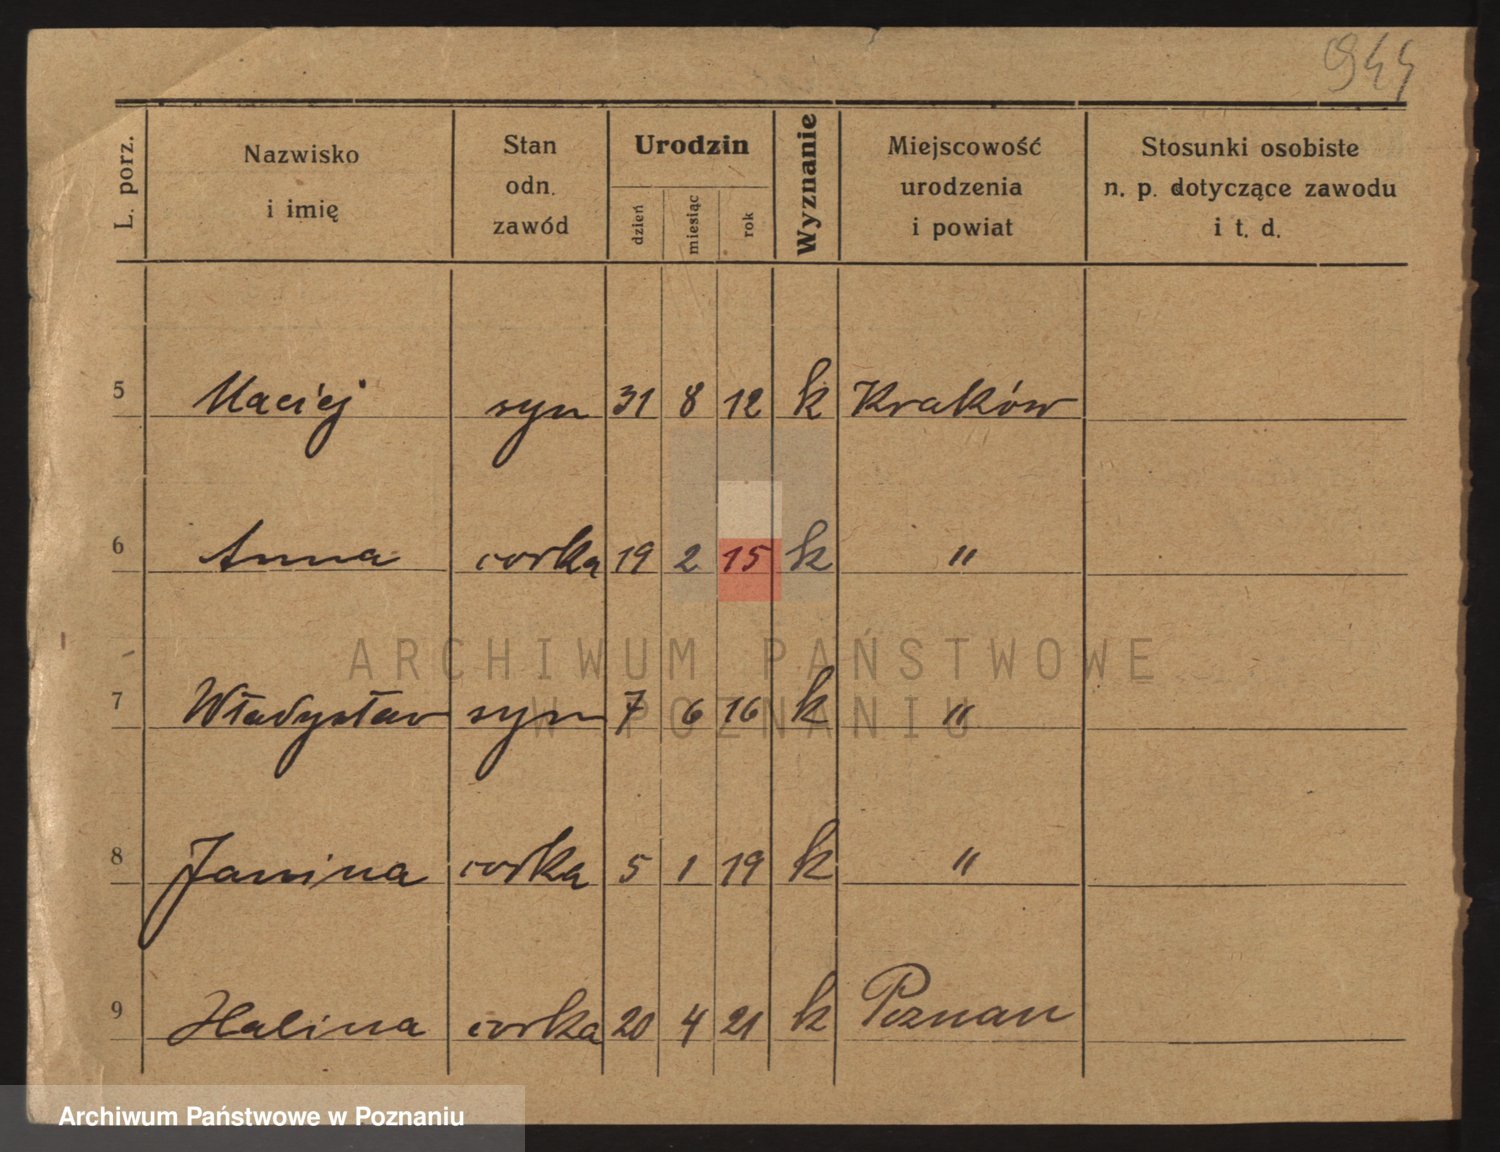 944
L. porz.
Nazwisko
i imię
Stan
odn.
zawód
Urodzin
dzień
miesiąc
rok
Wyznanie
Miejscowość
urodzenia
i powiat
Stosunki osobiste
n. p. dotyczące zawodu
i t. d.
5 Maciej syn 31 8 12 k Kraków
6 Anna corka 19 2 15 k "
ARCHIWUM PAŃSTWOWE
7 Władysław syn 7 6 16 k "
W POZNANIU
8 Janina corka 5 1 19 k "
9 Halina corka 20 4 21 k Poznan
Archiwum Państwowe w Poznaniu